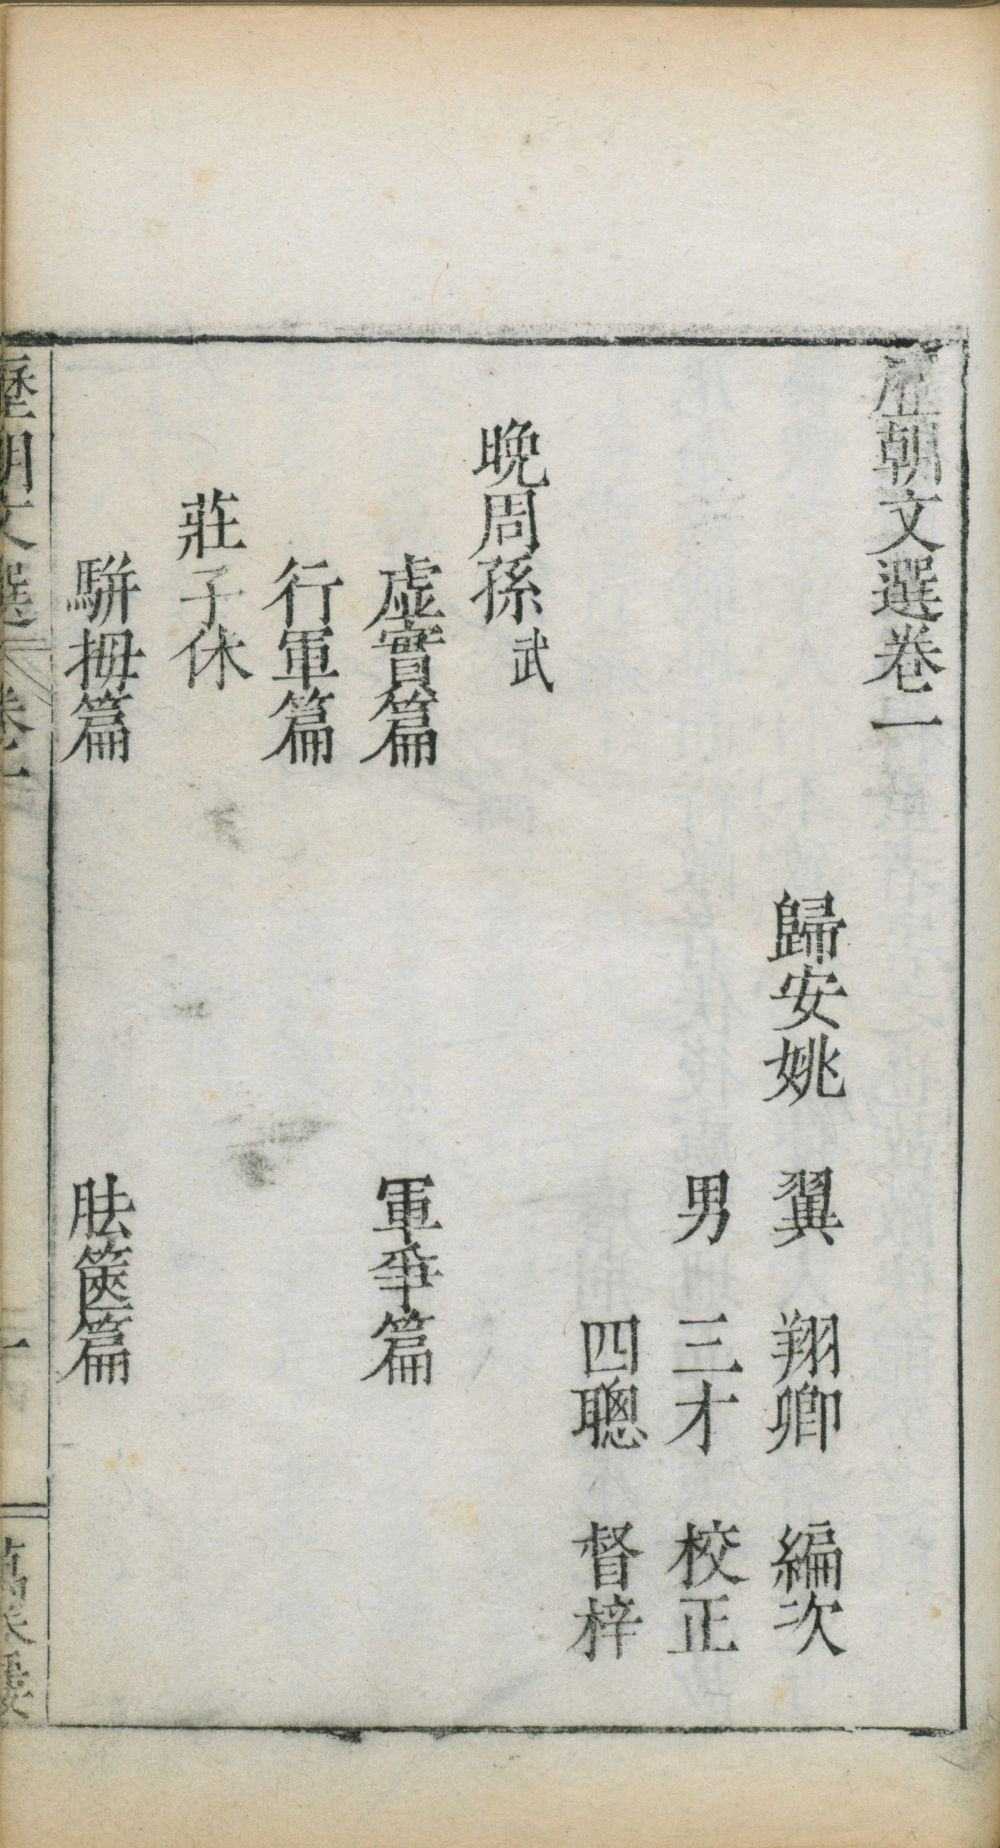 歷朝文選卷一
歸安姚 翼 翔卿 編次
男 三才 校正
四聰 督梓
晚周孫武
虛實篇 軍爭篇
行軍篇
莊子休
駢拇篇 胠篋篇
歷朝文選 卷一 一